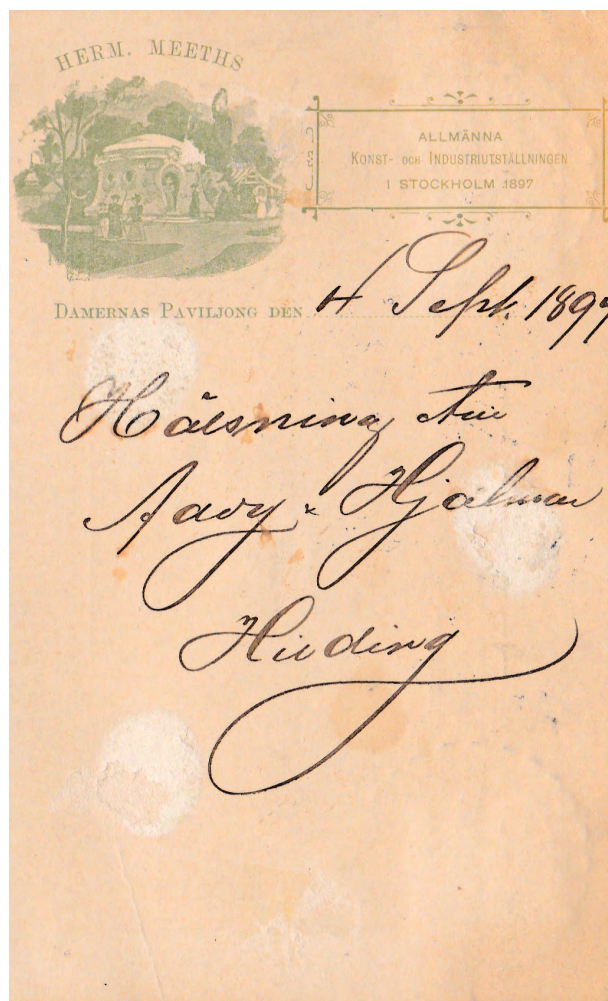 HERM. MEETHS
ALLMÄNNA
KONST- OCH INDUSTRIUTSTÄLLNINGEN
I STOCKHOLM 1897
DAMERNAS PAVILJONG DEN 4 Sept. 1897
Hälsning
& Hjalmar
Hilding